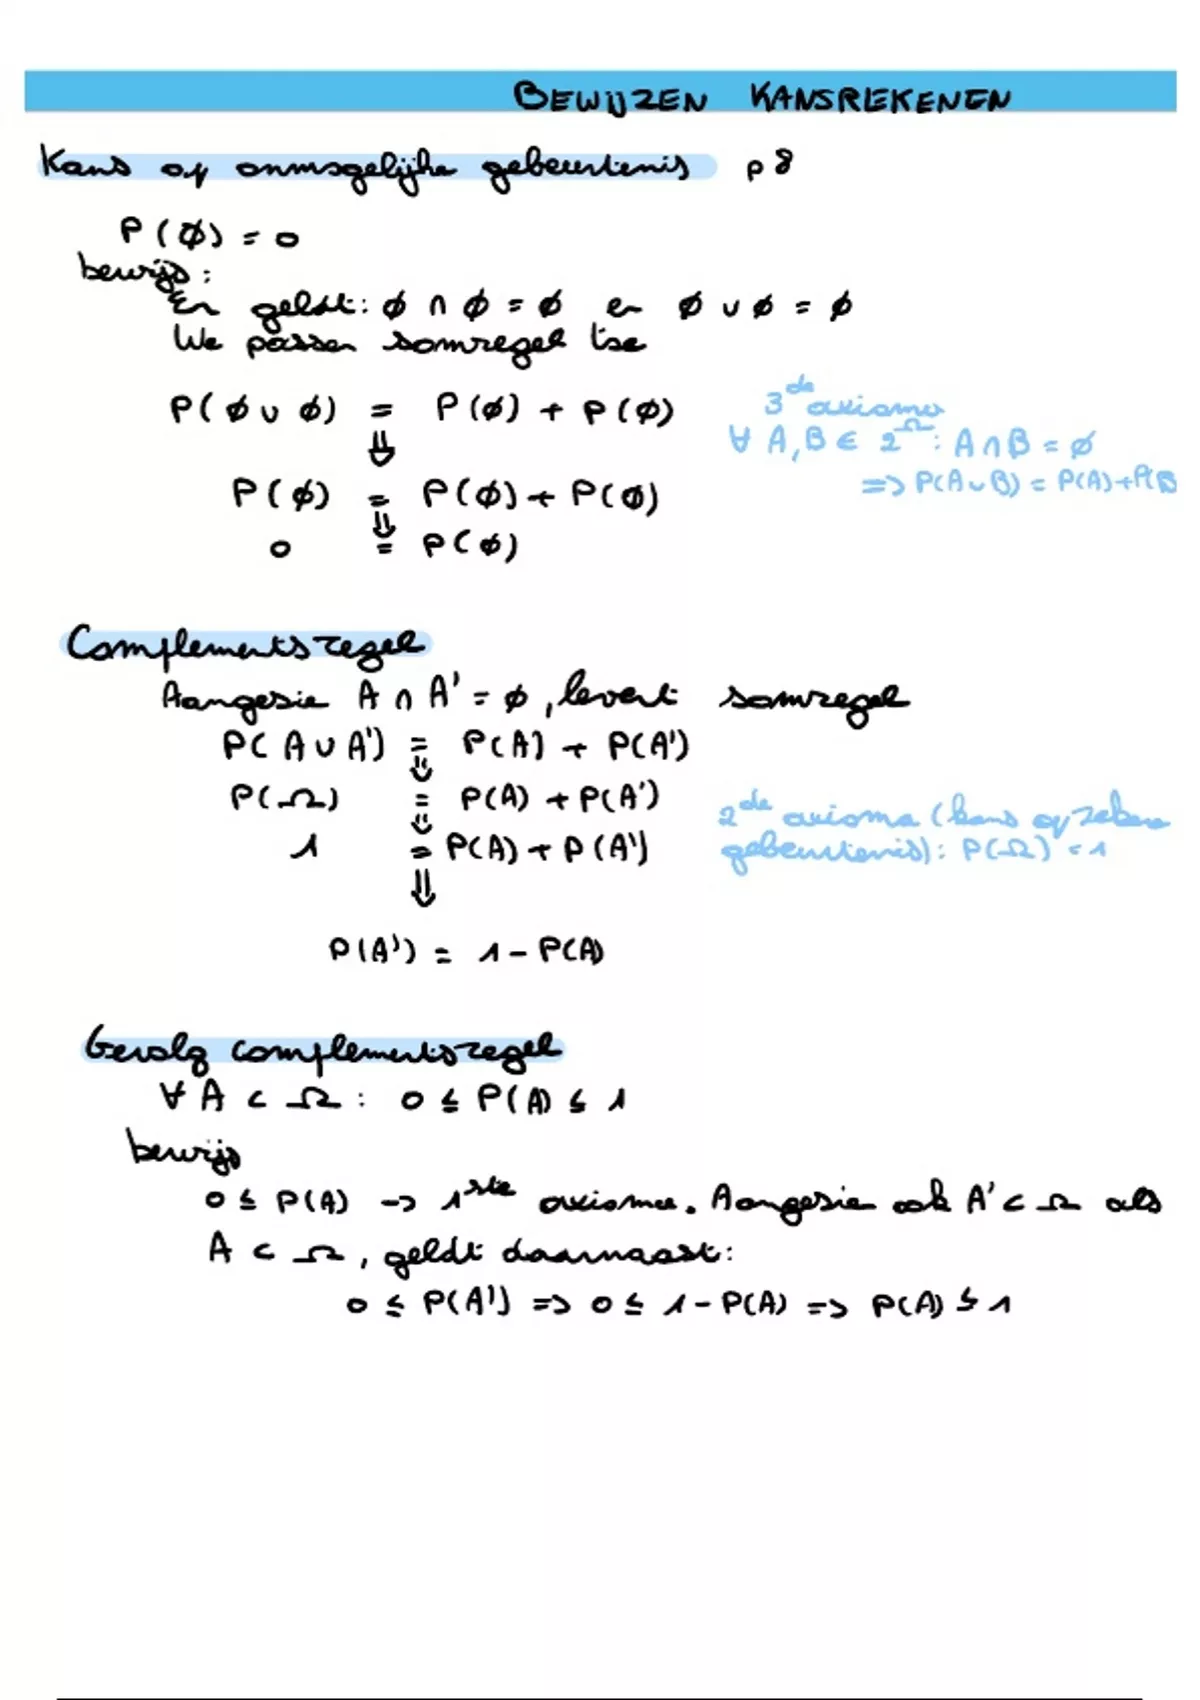 BEWIJZEN KANSREKENEN
Kans op onmogelijke gebeurtenis p 8
P(∅) = 0
bewijs:
Er geldt: ∅ ∩ ∅ = ∅ en ∅ ∪ ∅ = ∅
We passen somregel toe
P(∅ ∪ ∅) = P(∅) + P(∅)
⇓
P(∅) = P(∅) + P(∅)
⇓
0 = P(∅)
3de axioma
∀ A, B ∈ 2^Ω : A ∩ B = ∅
=> P(A ∪ B) = P(A) + P(B
Complementsregel
Aangezie A ∩ A' = ∅, levert somregel
P(A ∪ A') = P(A) + P(A')
⇓
P(Ω) = P(A) + P(A')
⇓
1 = P(A) + P(A')
⇓
2de axioma (kans op zekere
gebeurtenis): P(Ω) = 1
P(A') = 1 - P(A)
Gevolg complementsregel
∀ A ⊂ Ω : 0 ≤ P(A) ≤ 1
bewijs
0 ≤ P(A) -> 1ste axioma. Aangezien ook A' ⊂ Ω als
A ⊂ Ω, geldt daarnaast:
0 ≤ P(A') => 0 ≤ 1 - P(A) => P(A) ≤ 1